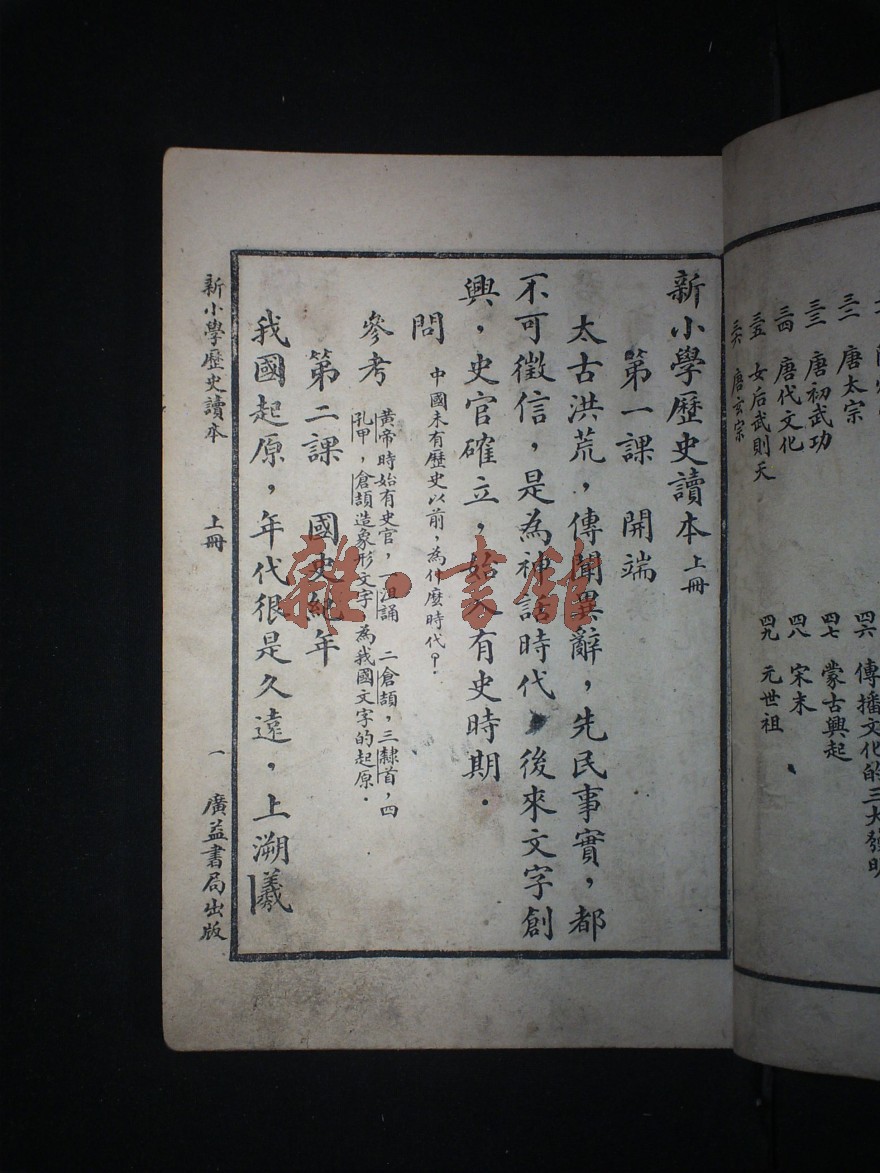 三二 唐太宗
三三 唐初武功
三四 唐代文化
三五 女后武則天
三六 唐玄宗
四六 傳播文化的三大發明
四七 蒙古興起
四八 宋末
四九 元世祖
新小學歷史讀本 上冊
第一課 開端
太古洪荒，傳聞異辭，先民事實，都
不可徵信，是為神話時代，後來文字創
興，史官確立，始入有史時期．
問 中國未有歷史以前，為什麼時代？
參考 黃帝時始有史官，一沮誦 二倉頡，三隸首，四
孔甲，倉頡造象形文字 為我國文字的起原．
第二課 國史紀年
我國起原，年代很是久遠，上溯羲
新小學歷史讀本 上冊 一 廣益書局出版
雜·書館